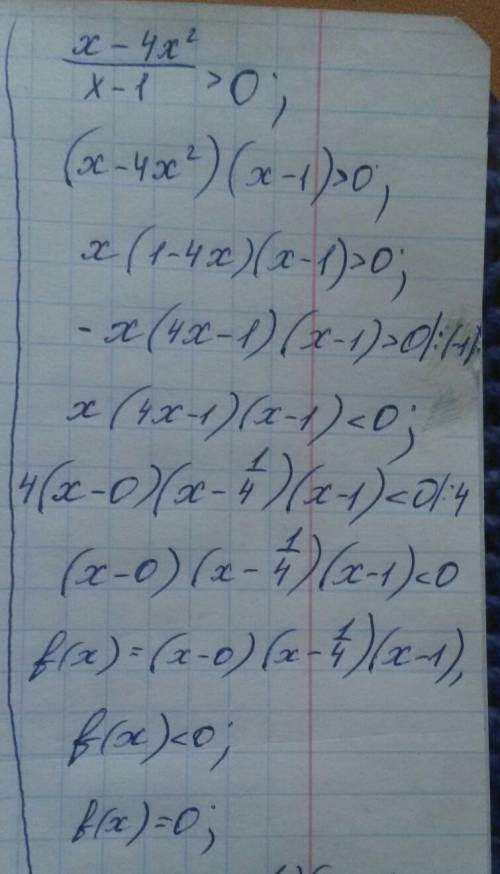 x - 4x²
x - 1 > 0;
(x - 4x²)(x - 1) > 0;
x(1 - 4x)(x - 1) > 0;
- x(4x - 1)(x - 1) > 0 |:(-1)
x(4x - 1)(x - 1) < 0;
4(x - 0)(x - 1/4)(x - 1) < 0 |:4
(x - 0)(x - 1/4)(x - 1) < 0
f(x) = (x - 0)(x - 1/4)(x - 1),
f(x) < 0;
f(x) = 0;